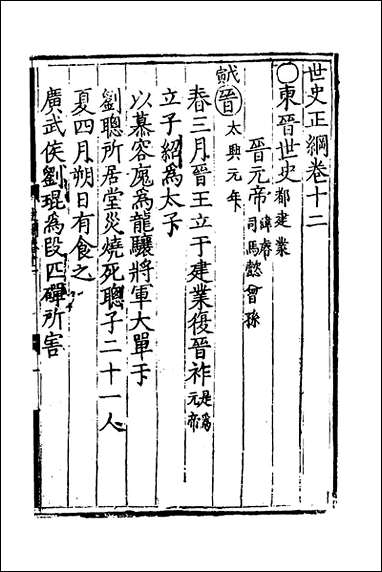 世史正綱卷十二
○東晉世史都建業
晉元帝諱睿司馬懿曾孫
晉太興元年
春三月晉王立于建業復晉祚是爲元帝
立子紹爲太子
以慕容廆爲龍驤將軍大單于
劉聰所居堂災燒死聰子二十一人
夏四月朔日有食之
廣武侯劉琨爲段匹磾所害